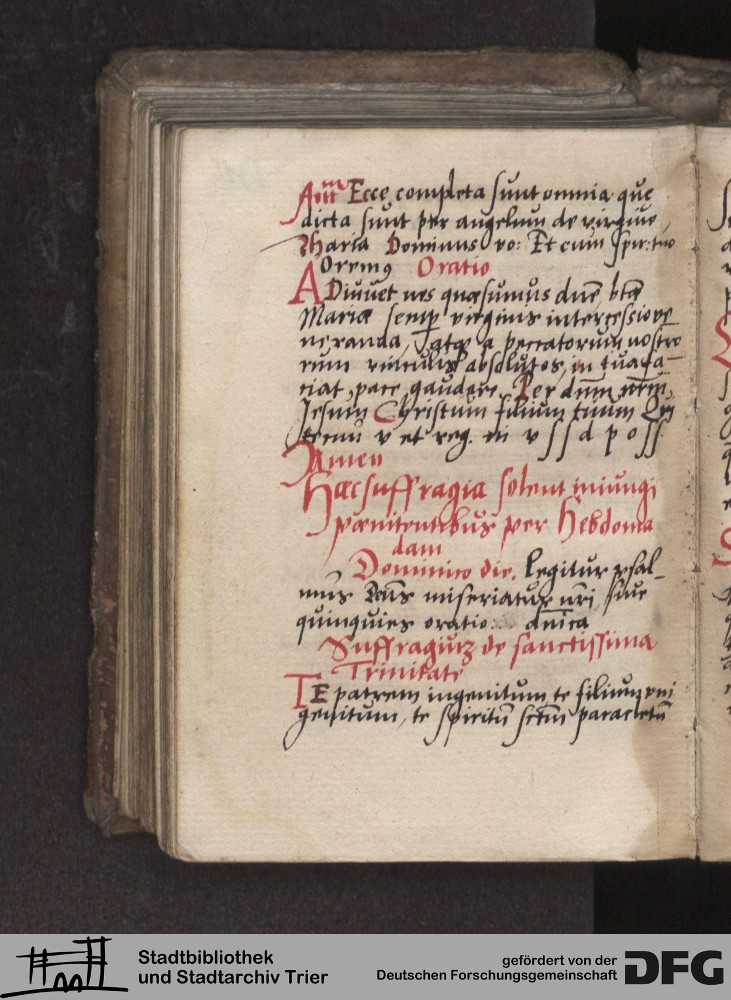 Antm Ecce completa sunt omnia que
dicta sunt per angelum de virgine
Maria Dominus vo: Et cum spir: tuo
Oremus Oratio
ADiuuet nos quæsumus dnē btæ
Mariæ semp virginis intercessio ve
neranda, atq a peccatorum nostro
rum vinculis absolutos, in tua fa-
ciat, pace gaudere. Per dnm nrm,
Jesum Christum filium tuum Qui
tecum v et reg. in v s s d p o ss
Amen
Hæc suffragia solent iniungi
pœnitentibus per hebdoma
dam
Dominico die. legitur psal-
mus Deus miseriatur nri, siue
quinquies oratio dnica
Suffragium de sanctissima
Trinitate
TE patrem ingenitum te filium vni
genitum, te spiritū sctm paracletū
Stadtbibliothek
und Stadtarchiv Trier
gefördert von der
Deutschen Forschungsgemeinschaft
DFG